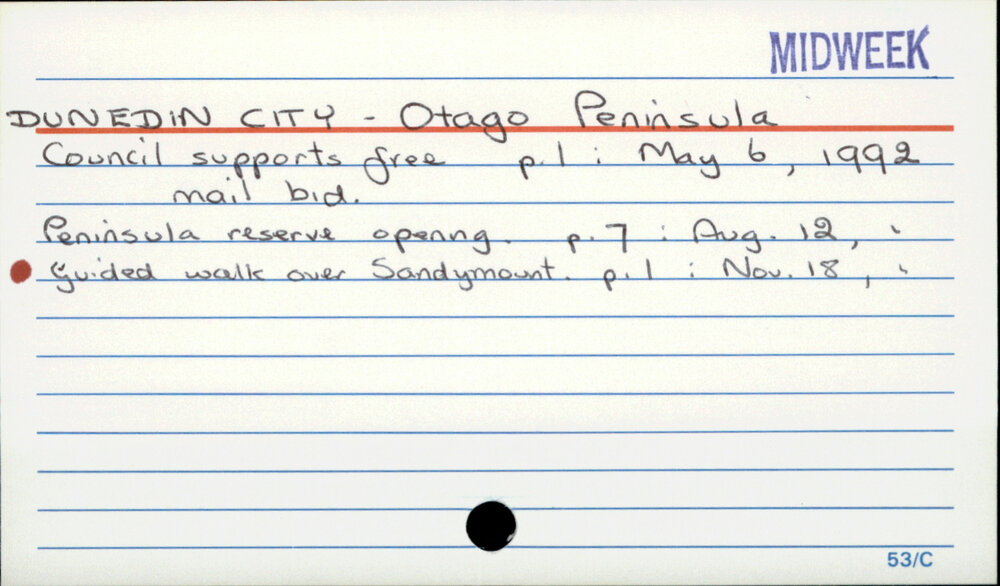 MIDWEEK
DUNEDIN CITY - Otago Peninsula
Council supports free p.1 : May 6, 1992
mail bid.
Peninsula reserve openng. p.7 : Aug. 12, "
Guided walk over Sandymount. p.1 : Nov. 18, "
53/C